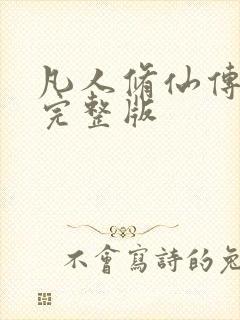 凡人脩仙傳
完整版
不會寫詩的兔